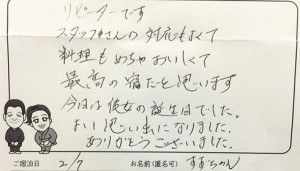 リピーターです
スタッフさんの対応もよくて
料理もめちゃおいしくて
最高の宿だと思います
今日は彼女の誕生日でした。
よい思い出になりました。
ありがとうございました。
ご宿泊日 2/7 お名前(匿名可) すすちゃん